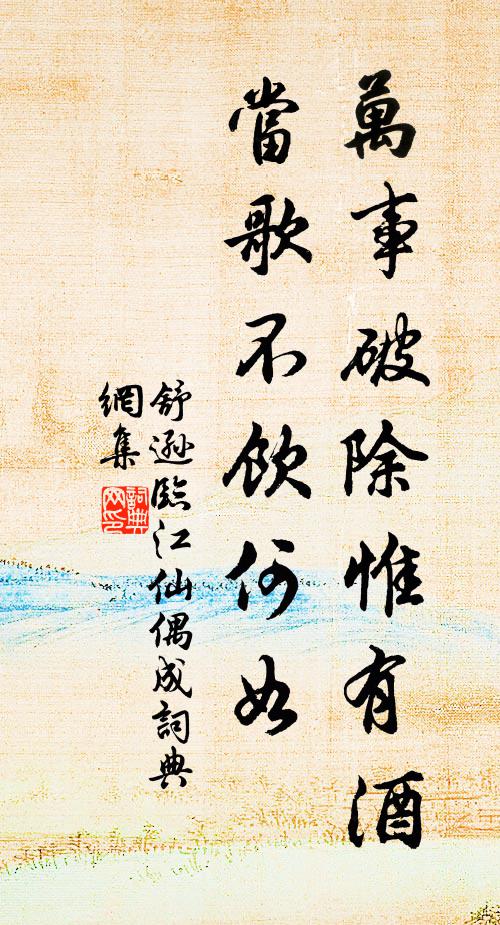 萬事破除惟有酒
當歌不飲何如
舒遜臨江仙偶成詞典
網集
詞典
网印